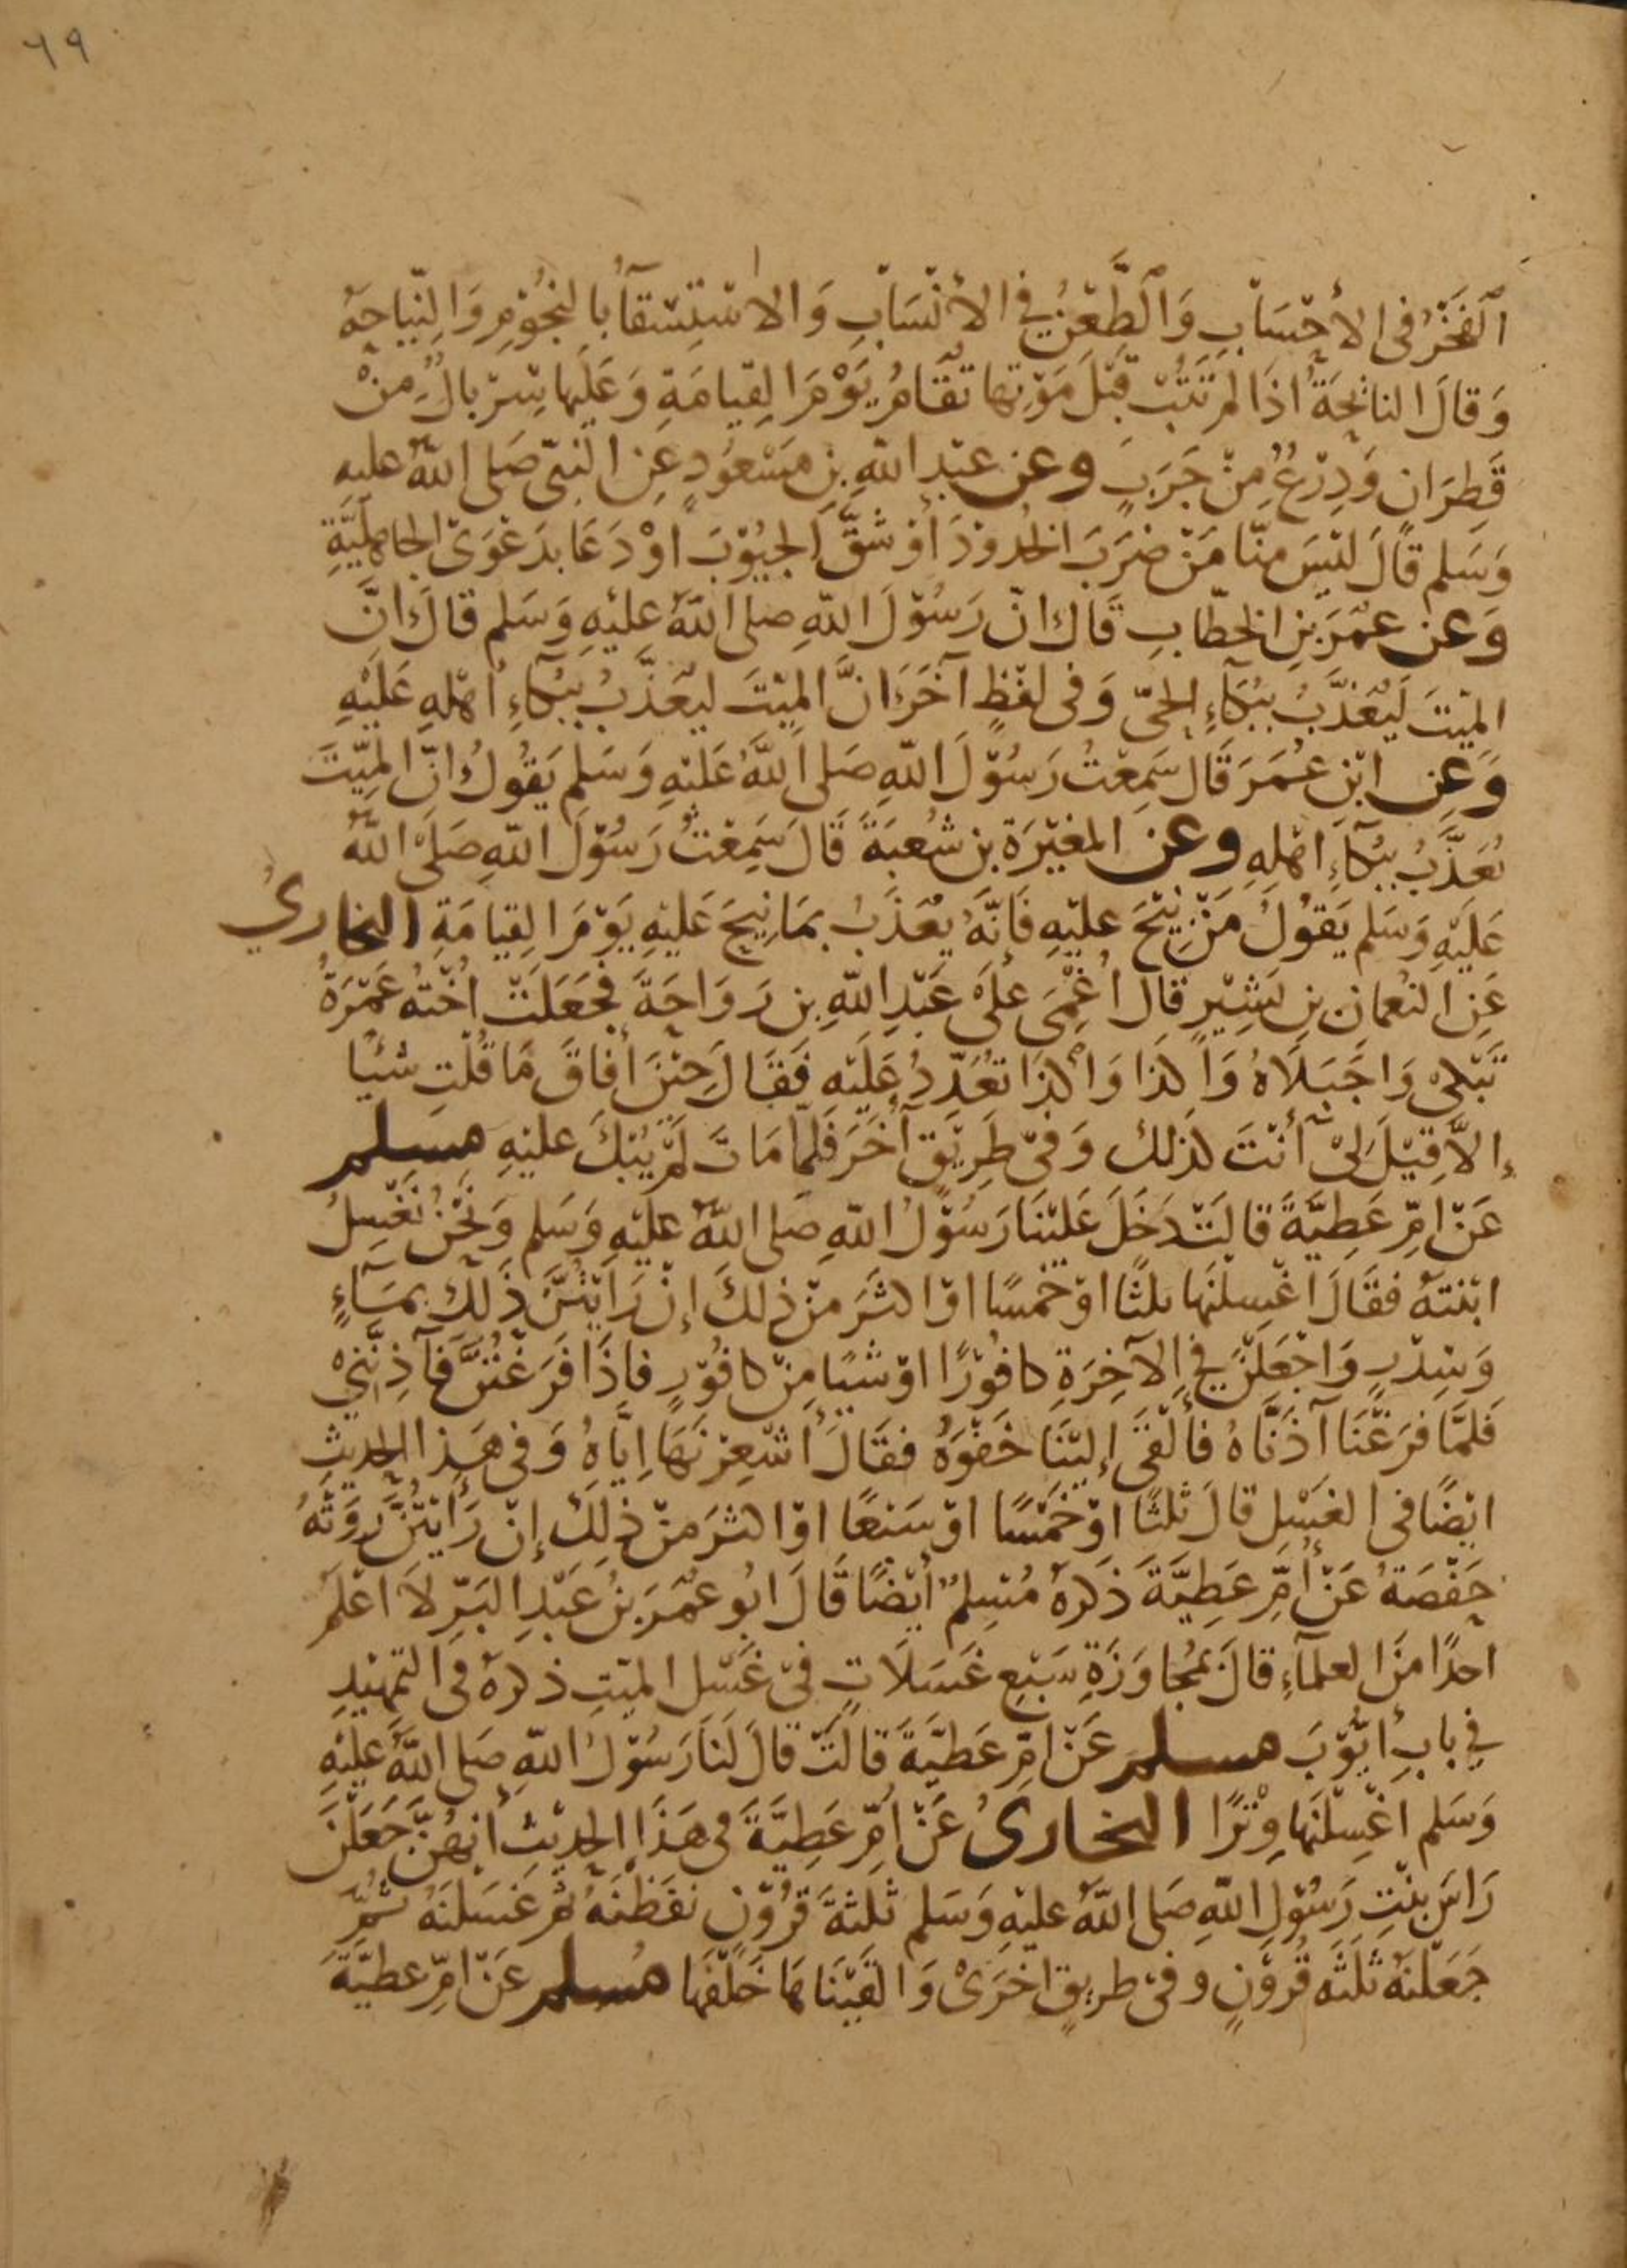 ٦٩
اَلْفَخْرُ فى الأَحْسَابِ وَالطَّعْنُ في الأَنْسَابِ وَالاسْتِسْقَآءُ بالنجُوْمِ وَالنِّيَاحَةُ
وَقالَ النائحَةُ اذَا لم تَتُبْ قبْلَ مَوْتِها تُقَامُ يَوْمَ القِيامَةِ وَعَلَيها سِرْبالٌ مِنْ
قَطِرَانٍ وَدِرْعٌ مِنْ جَرَبٍ وعن عبْدِ اللّهِ بنِ مَسْعُودٍ عَنِ النبىّ صَلى اللّهُ عليهِ
وَسَلم قَالَ ليْسَ منّا مَنْ ضرَبَ الخدُوْدَ أوْ شقَّ الجيُوْبَ اوْ دَعَا بدَعْوَىْ الجاهليَّةِ
وَعن عمَرَ بنِ الخطّابِ قَال انّ رَسُوْلَ اللّهِ صلى اللّهُ عليْهِ وَسَلم قالَ انَّ
الميْتَ لَيُعَذَّبُ ببُكَآءِ الحىّ وَفى لفْظٍ آخَرَ انَّ الميْتَ ليعَذَّبُ ببُكآءِ اهْلهِ عَلَيْهِ
وَعنِ ابْنِ عُمَرَ قَالَ سَمِعْتُ رَسُوْلَ اللّهِ صَلى اللّهُ عَلَيْهِ وَسَلم يَقُولُ انّ الميّتَ
يُعَذَّبُ ببُكآءِ اهْلهِ وعن المغيْرَة بن شُعبَةَ قَالَ سَمِعْتُ رَسُوْلَ اللّهِ صَلَّى اللّهُ
عَلَيْهِ وَسَلم يَقُوْلُ مَنْ نِيْحَ عليْهِ فَانَّهُ يُعَذَبُ بمَا نِيحَ عَليْهِ يَوْمَ القِيامَةِ البخارىُّ
عَنِ النعْمان بنِ بَشِيْرٍ قالَ اُغْمِىَ علَى عَبْدِ اللّهِ بن رَوَاحَةَ فجَعَلَتْ اُخْتهُ عَمْرَةُ
تَبْكى وَاجَبَلَاهُ وَا كذَا وَا كذَا تُعَدّدُ عَلَيْهِ فَقَالَ حِيْنَ أَفاقَ مَا قُلْتِ شيْئًا
إلاَّ قِيْلَ لىْ أَنْتَ كذَلك وَفىْ طَرِيْقٍ آخَرَ فَلمّا مَاتَ لَمْ يُبْكَ عليْهِ مسَلم
عَنْ امّ عَطِيَّةَ قالَتْ دَخَلَ عَليْنَا رَسُوْلُ اللّهِ صَلى اللّهُ عليْهِ وَسَلم وَنَحْنُ نُغَسِلُ
ابْنتهُ فقَالَ اغْسِلْنَها ثلثًا اوْ خمْسًا اوْ اكثَرَ منْ ذلكَ إنْ رَايْتُنَّ ذَلكَ بمَآءٍ
وَسِدْرٍ وَاجْعَلْنَ في الآخِرَةِ كافُوْرًا اوْ شيْئًا مِنْ كافُوْرٍ فاِذَا فَرَغْتُنَّ فَآذِنَّنِىْ
فَلمَّا فرَغْنَا آذَنَّاهُ فأَلْقَى إليْنَا حَقْوَهُ فقَالَ أشْعِرْنَهَا اِيَّاهُ وَفى هَذا الحديثِ
ايْضًا فى الغَسْلِ قالَ ثلثًا اوْ خَمْسًا اوْ سَبْعًا اوْ اكثرَ منْ ذلِكَ إنْ رَأيْتُنَّ رَوَتْهُ
حَفْصَةُ عَنْ أُمِّ عَطِيَّةَ ذَكرَهُ مُسْلِمٌ أيْضًا قَالَ ابُو عُمَرَ بنُ عَبْدِ البَرّ لاَ اعْلَمُ
احدًا منَ العلمآءِ قالَ بمُجاوَزَةِ سَبْعِ غَسَلَاتٍ فىْ غَسْلِ الميّتِ ذكرَهُ فى التمْهيْدِ
في بابِ أيُّوْبَ مسلم عَنْ امّ عَطيَّةَ قالَتْ قالَ لَنَا رَسُوْلُ اللّهِ صَلى اللّهُ عَليْهِ
وَسَلم اغْسِلْنَها وِتْرًا البخارىُ عَنْ اُمّ عَطِيَّةَ فى هَذَا الحديْث أنهُنّ جَعَلْنَ
رَاسَ بنْتِ رَسُوْلِ اللّهِ صَلى اللّهُ عليْهِ وَسَلم ثَلثةَ قرُوْنٍ نقَضْنَهُ ثم غَسَلنَهُ ثمّ
جَعَلْنهُ ثلثَه قُرُوْنٍ وفىْ طريقٍ اخرَىْ وَالقيْنَاهَا خَلْفَها مُسلم عَنْ امّ عطيَّةَ